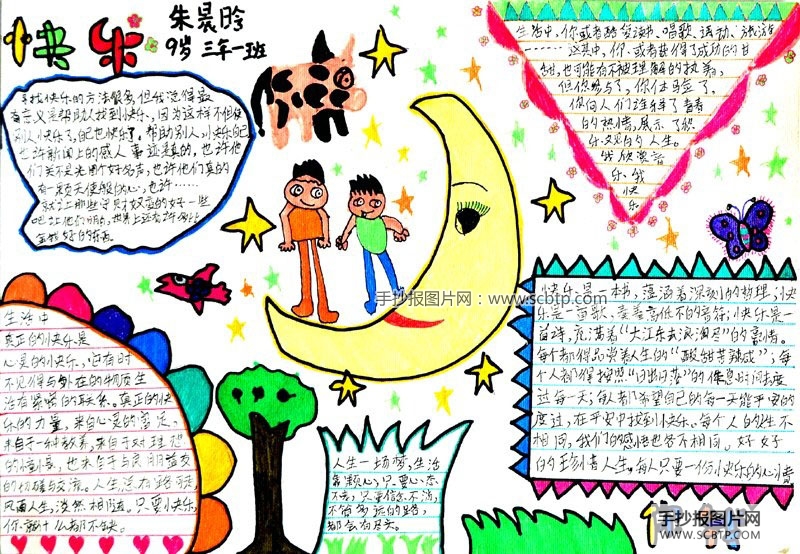 快乐
朱晨晗
9岁 三年一班
寻找快乐的方法很多,但我觉得最
有意义是帮助人找到快乐,因为这样不但使
别人快乐了,自己也快乐了,帮助别人,快乐自己
也许新闻上的感人事迹是真的,也许他
们
一颗天使般的心,也许……
就让那些
吧让他们明白,世界上还有许多比
金钱好的东西。
生活中,你或者酷爱读书、唱歌、运动、旅游
……这其中,你或者获得了成功的甘
甜,也可能有不被理解的执着,
但你努力了,你体验了。
你向人们诠释了青春
的热情,展示了积
乐观的人生。
我欣赏着
乐 我
快
乐
手抄报图片网:www.scbtp.com
快乐是一本书,蕴涵着深刻的哲理;快
乐是一首歌,变奏高低不同的音符;快乐是一
首诗,充满着“大江东去浪淘尽”的豪情。
每个都得品尝着人生的“酸甜苦辣咸”;每
个人都得按照“日出日落”的作息时间去度
过每一天;每人都希望自己的每一天能平安的
度过,在平安中找到快乐。每个人的人生不
相同,我们的感悟也各不相同。好好
的珍惜人生。每人只要一份快乐的心情
生活中
真正的快乐是
心灵的快乐,它有时
不见得与外在的物质生
活有紧密的联系。真正的快
乐的力量,来自心灵的富足,
来自于一种教养,来自于对理想
的憧憬,也来自于与良朋益友
的切磋与交流。人生没有路可走
风雨人生,淡然相随。只要快乐,
你就什么都不缺。
人生一场梦,生活
靠颗心;只要心态
不老,只要信念不消,
不管多远的路,
都会有尽头。
手抄报图片网
SCBTP.COM